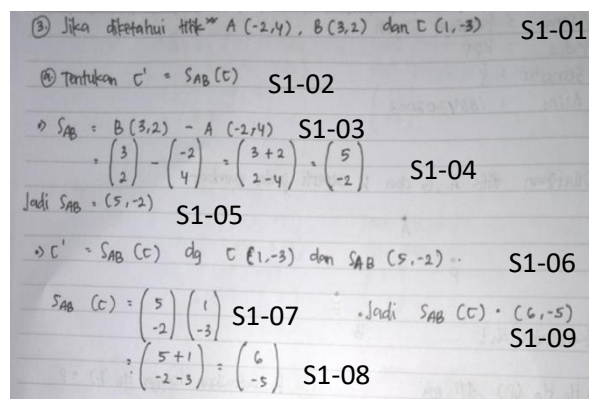 ③ Jika diketahui titik" A (-2,4), B (3,2) dan C (1,-3) S1-01
ⓐ Tentukan C' = S_AB (C) S1-02
•) S_AB = B (3,2) - A (-2,4) S1-03
= (3 2) - (-2 4) = (3+2 2-4) = (5 -2) S1-04
Jadi S_AB = (5,-2) S1-05
•) C' = S_AB (C) dg C (1,-3) dan S_AB (5,-2) .. S1-06
S_AB (C) = (5 -2) (1 -3) S1-07 . Jadi S_AB (C) = (6,-5)
S1-09
= (5+1 -2-3) = (6 -5) S1-08